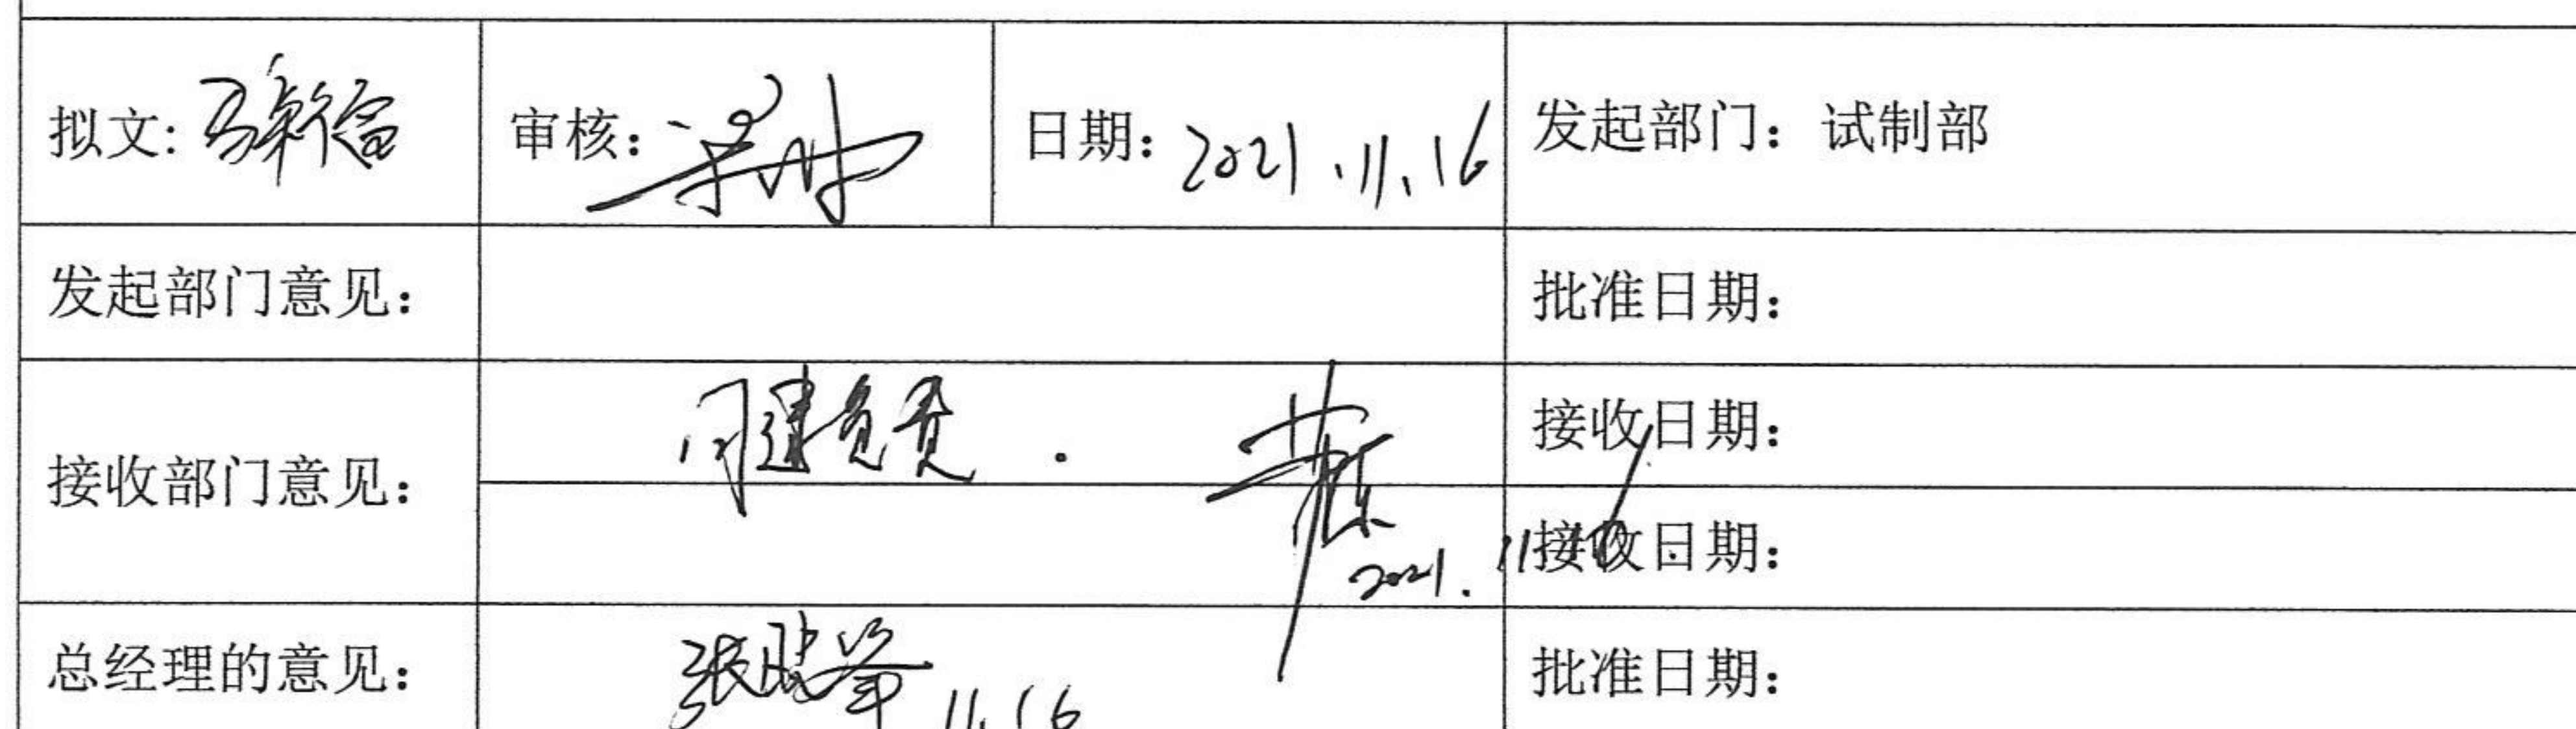 拟文: 审核: 日期: 2021.11.16 发起部门: 试制部
发起部门意见: 批准日期:
接收部门意见: 接收日期:
2021. 接收日期:
总经理的意见: 张晓峰 11.16 批准日期: